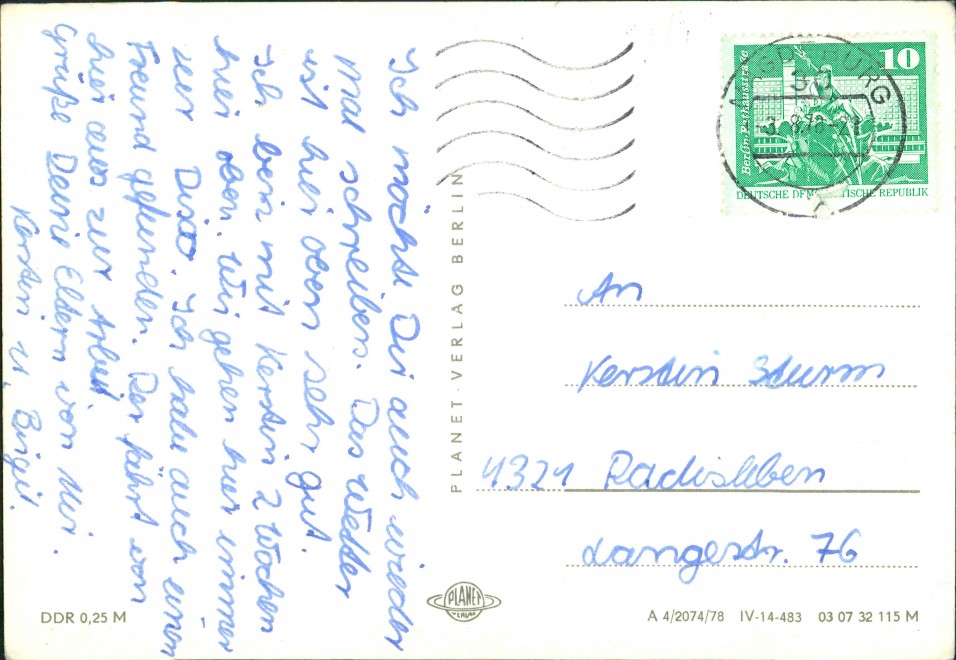 Ich möchte Dir auch wieder
mal schreiben. Das Wetter
ist hier oben sehr gut.
Ich bin mit Kerstin 2 Wochen
hier oben. Wir gehen hier immer
zur Disco. Ich habe auch einen
Freund gefunden. Der fährt von
hier aus zur Arbeit.
Grüße Deine Eltern von Mir.
Kerstin u. Birgit.
PLANET-VERLAG BERLIN
10
Berlin-Rathausstraße
DEUTSCHE REPUBLIK
An
Kerstin Sturm
4321 Radisleben
Langestr. 76
DDR 0,25 M
PLANET
VERLAG
A 4/2074/78 IV-14-483 03 07 32 115 M